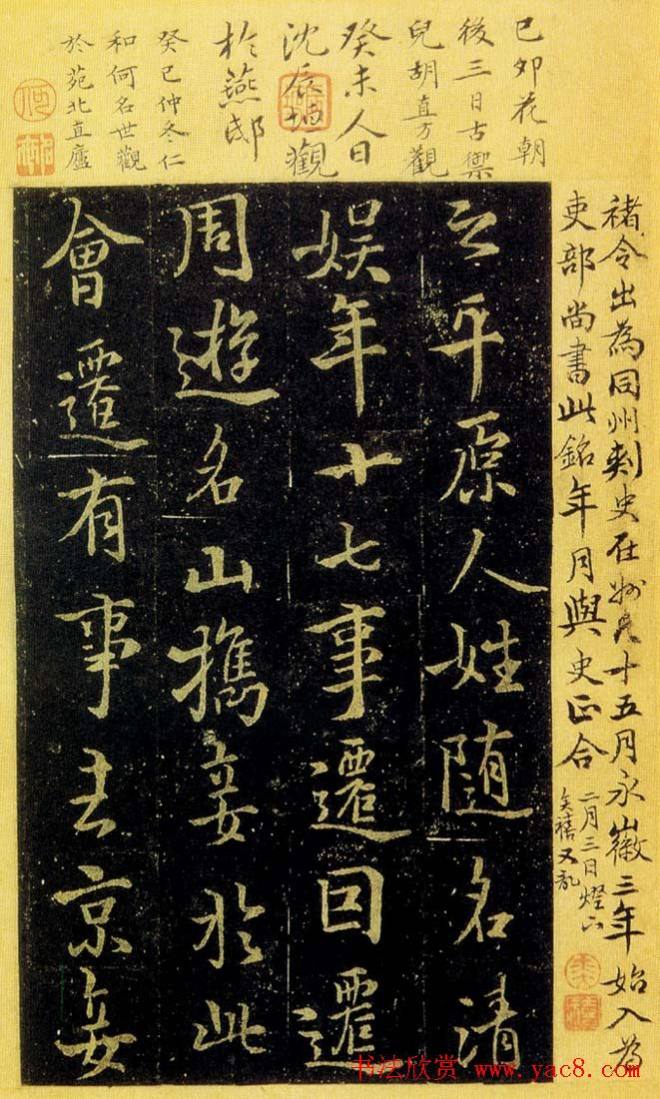 己卯花朝
後三日古禦
兒胡直方觀
癸未人日
沈辰垣觀
於燕邸
癸巳仲冬仁
和何名世觀
於苑北直廬
褚令出為同州刺史在州凡十五月永徽三年始入為
吏部尚書此銘年月與史正合
二月三日燈下
奕禧又記
之平原人姓隨名清
娛年十七事遷囙遷
周遊名山攜妾於此
會遷有事去京妾
书法欣赏 www.yac8.com